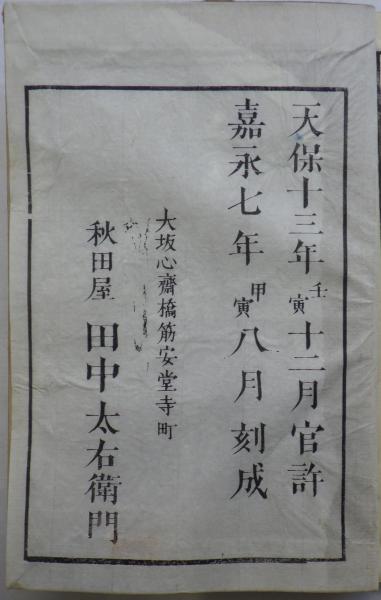 天保十三年壬寅十二月官許
嘉永七年甲寅八月刻成
大坂心齋橋筋安堂寺町
秋田屋 田中太右衛門